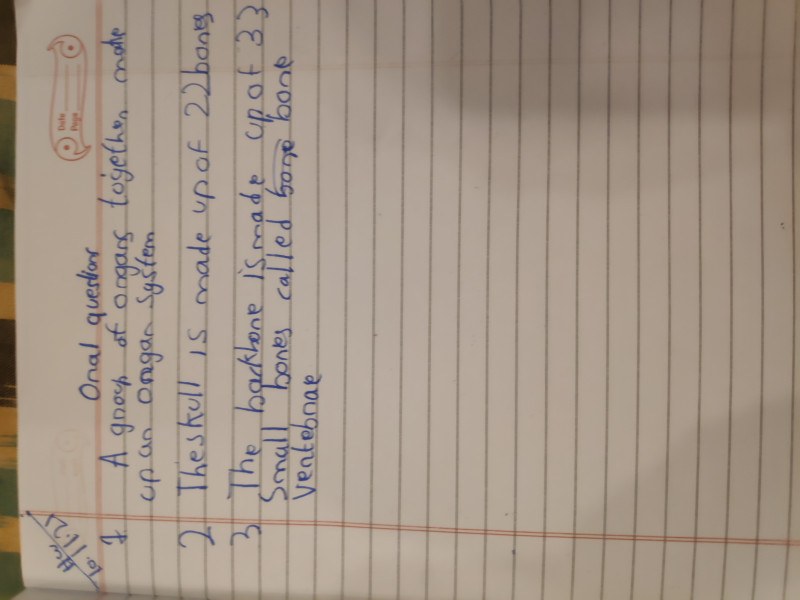 Date
Page
H.W
10/11.25
Oral questions
1 A group of organs together make
up an oragan system
2 The skull is made up of 22 bones
3 The backbone is made up of 33
Small bones called bone bone
Vertebrae